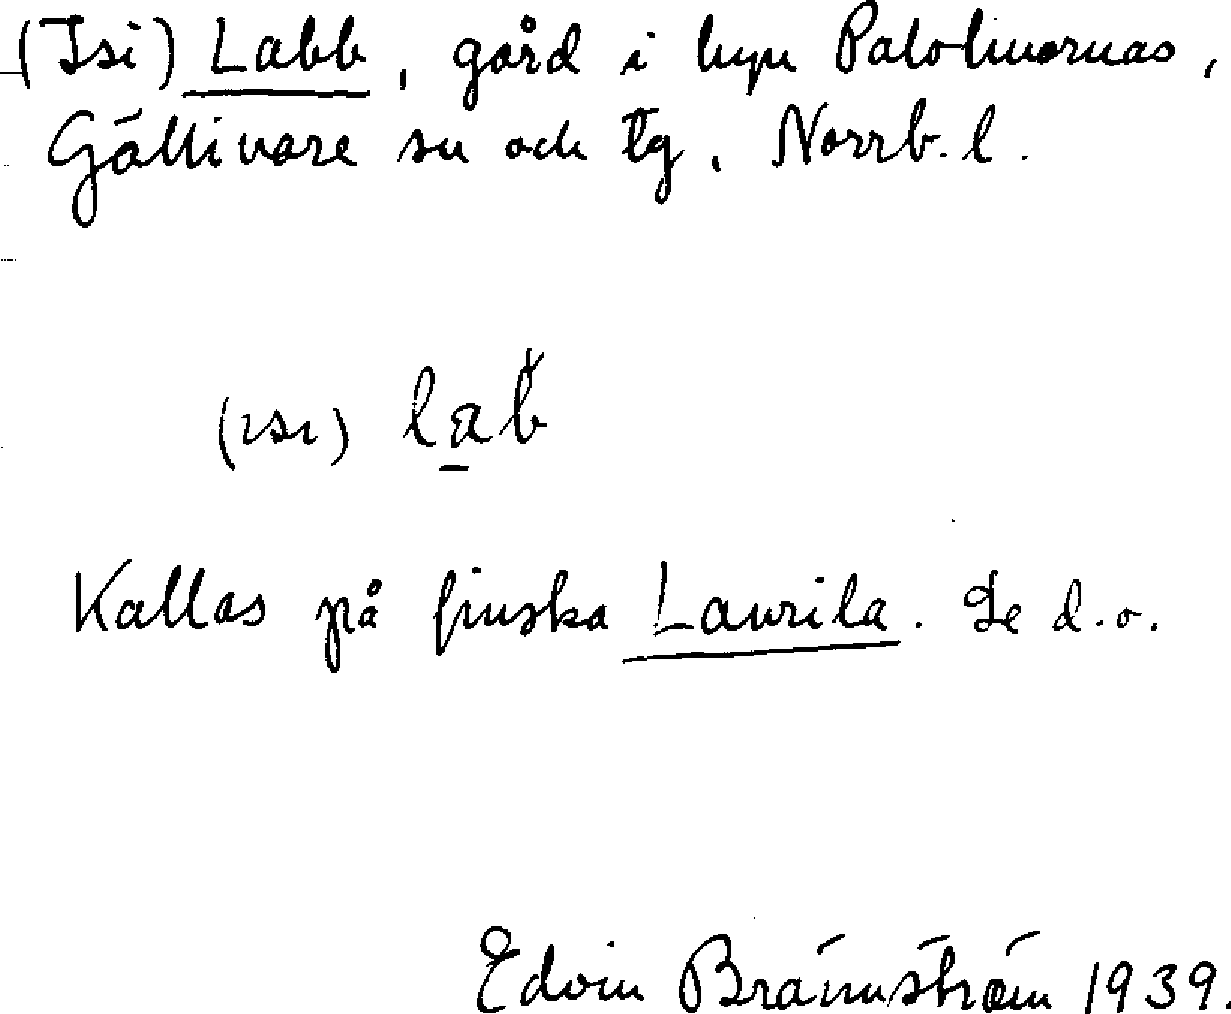 (Isi) Labb, gård i byn Palohuornas,
Gällivare sn och tg, Norrb. l.
(ısı) lab
Kallas på finska Laurila. Se d.o.
Edvin Brännström 1939.